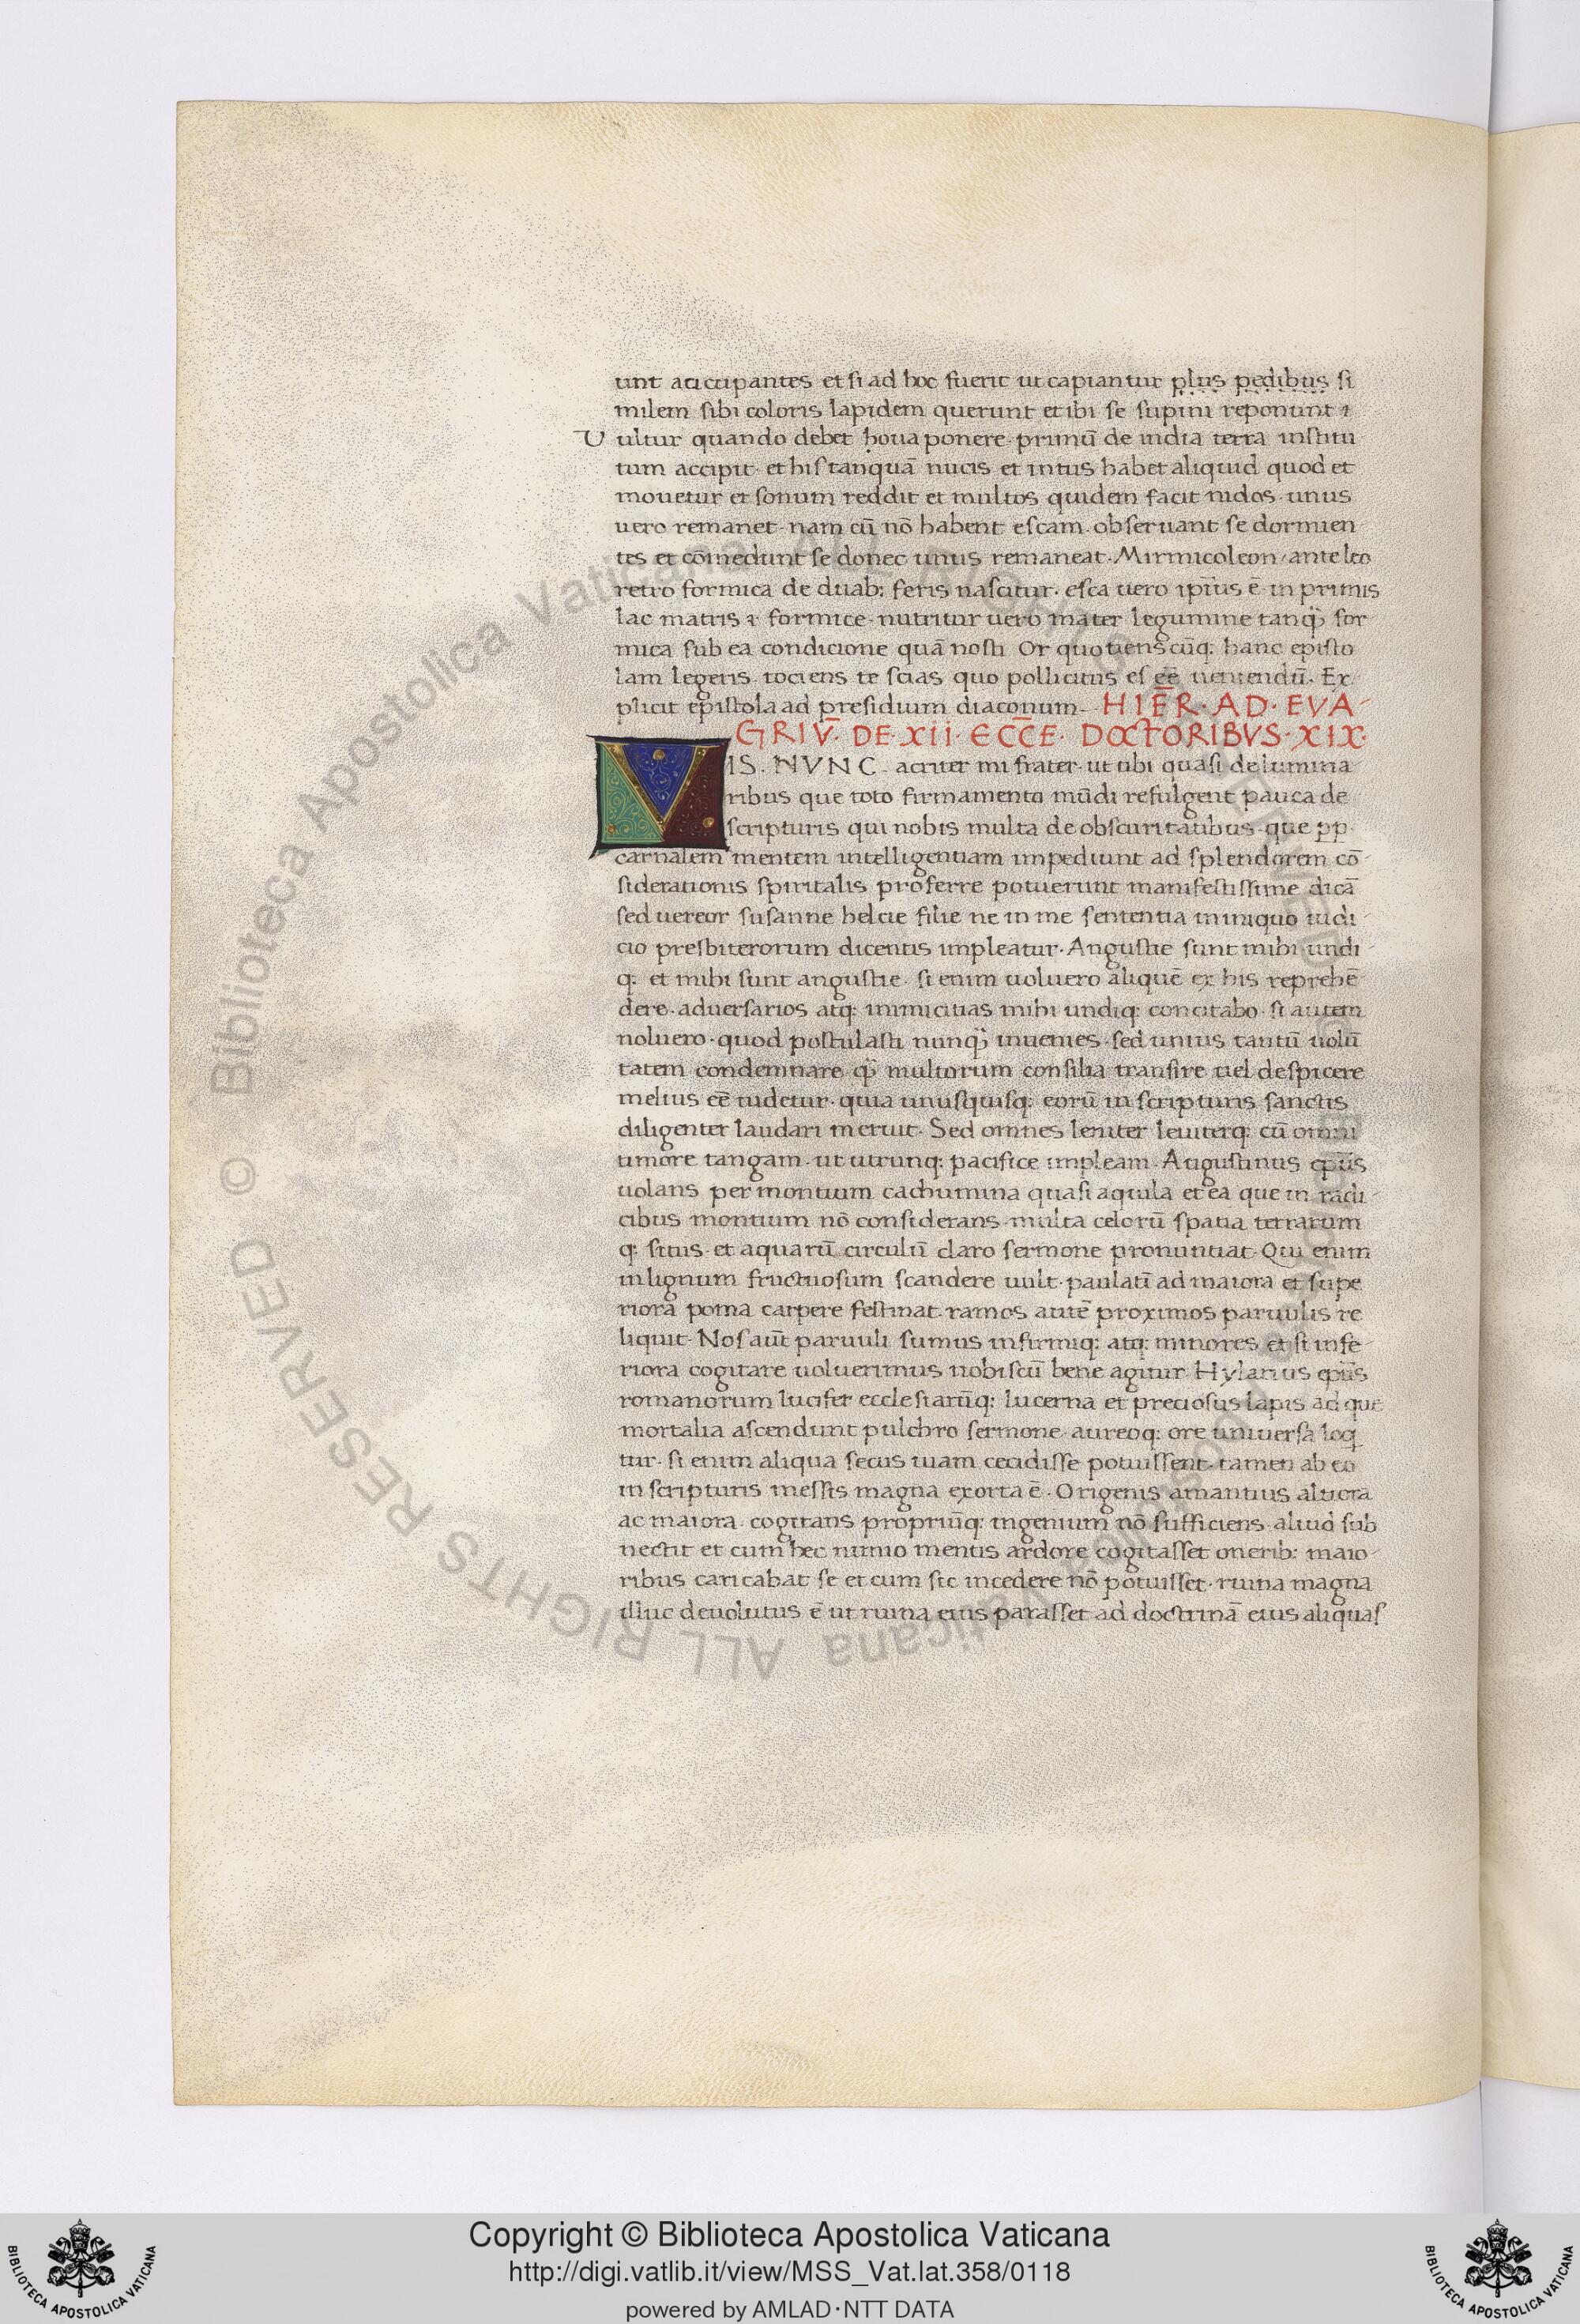 unt aucupantes et si ad hoc fuerit ut capiantur plus pedibus si
milem sibi coloris lapidem querunt et ibi se supini reponunt ⁊
V ultur quando debet houa ponere· primū de india terra institu
tum accipit· et his tanquā nucis et intus habet aliquid quod et
mouetur et sonum reddit et multos quidem facit nidos· unus
uero remanet· nam cū nō habent escam· obseruant se dormien
tes et cōmedunt se donec unus remaneat· Mirmicoleon/ ante leo
retro formica de duab: feris nascitur· esca uero ip̄ius ē in primis
lac matris ⁊ formice· nutritur uero mater legumine tanq̄ for
mica sub ea condicione quā nosti Or quotienscūq: hanc episto
lam legeris· tociens te scias quo pollicitus es eē ueniendū· Ex
plicit epistola ad presidium diaconum· HIER̄· AD· EVA-
GRIV̄· DE· XII· ECC̄E· DOCTORIBVS· XIX·
VIS· NVNC· acriter mi frater· ut tibi quasi de lumina
ribus que toto firmamento mūdi refulgent pauca de
scripturis qui nobis multa de obscuritatibus· que pp·
carnalem mentem intelligentiam impediunt ad splendorem cō-
siderationis spiritalis proferre potuerunt manifestissime dicā
sed uereor susanne helcie filie ne in me sententia in iniquo iudi-
cio presbiterorum dicentis impleatur· Angustie sunt mihi undi-
q: et mihi sunt angustie· si enim uoluero aliquē ex his reprehē
dere· aduersarios atq: inimicitias mihi undiq: concitabo· si autem
noluero· quod postulasti nunq̄ inuenies· sed unius tantū uolū
tatem condemnare q̄ multorum consilia transire uel despicere
melius eē uidetur· quia unusquisq: eorū in scripturis sanctis
diligenter laudari meruit· Sed omnes leniter leuiterq: cū omni
timore tangam· ut utrunq: pacifice impleam· Augustinus ep̄us
uolans per montium cachumina quasi aquila et ea que in radi-
cibus montium nō considerans· multa celorū spatia terrarum
q: situs· et aquarū circulū claro sermone pronuntiat· Qui enim
in lignum fructuosum scandere uult· paulatī ad maiora et supe
riora poma carpere festinat· ramos autē proximos paruulis re
liquit· Nos aūt paruuli sumus infirmiq: atq: minores et si infe-
riora cogitare uoluerimus nobiscū bene agitur· Hylarius ep̄us
romanorum lucifer ecclesiarūq: lucerna et preciosus lapis ad que
mortalia ascendunt pulchro sermone· aureoq: ore uniuersa loq
tur· si enim aliqua secus uiam cecidisse potuissent· tamen ab eo
in scripturis messis magna exorta ē· Origenis amantius altiora
ac maiora· cogitans propriūq: ingenium nō sufficiens· aliud sub
nectit et cum hec nimio mentis ardore cogitasset onerib: maio-
ribus caricabat se et cum sic incedere nō potuisset· ruina magna
illuc deuolutus ē ut ruina eius parasset ad doctrinā eius aliquas
© Biblioteca Apostolica Vaticana
ALL RIGHTS RESERVED
Copyright © Biblioteca Apostolica Vaticana
http://digi.vatlib.it/view/MSS_Vat.lat.358/0118
powered by AMLAD·NTT DATA
BIBLIOTECA APOSTOLICA VATICANA
BIBLIOTECA APOSTOLICA VATICANA